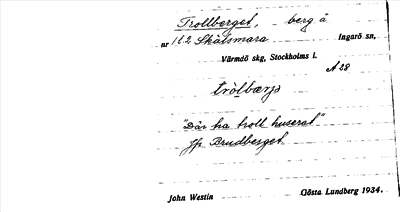 Trollberget, berg å
nr 1t.2 Skälsmara Ingarö sn,
Värmdö skg, Stockholms l.
A 28
tròlbærjə
"Där ha troll huserat"
Jfr Brudberget
John Westin Gösta Lundberg 1934.